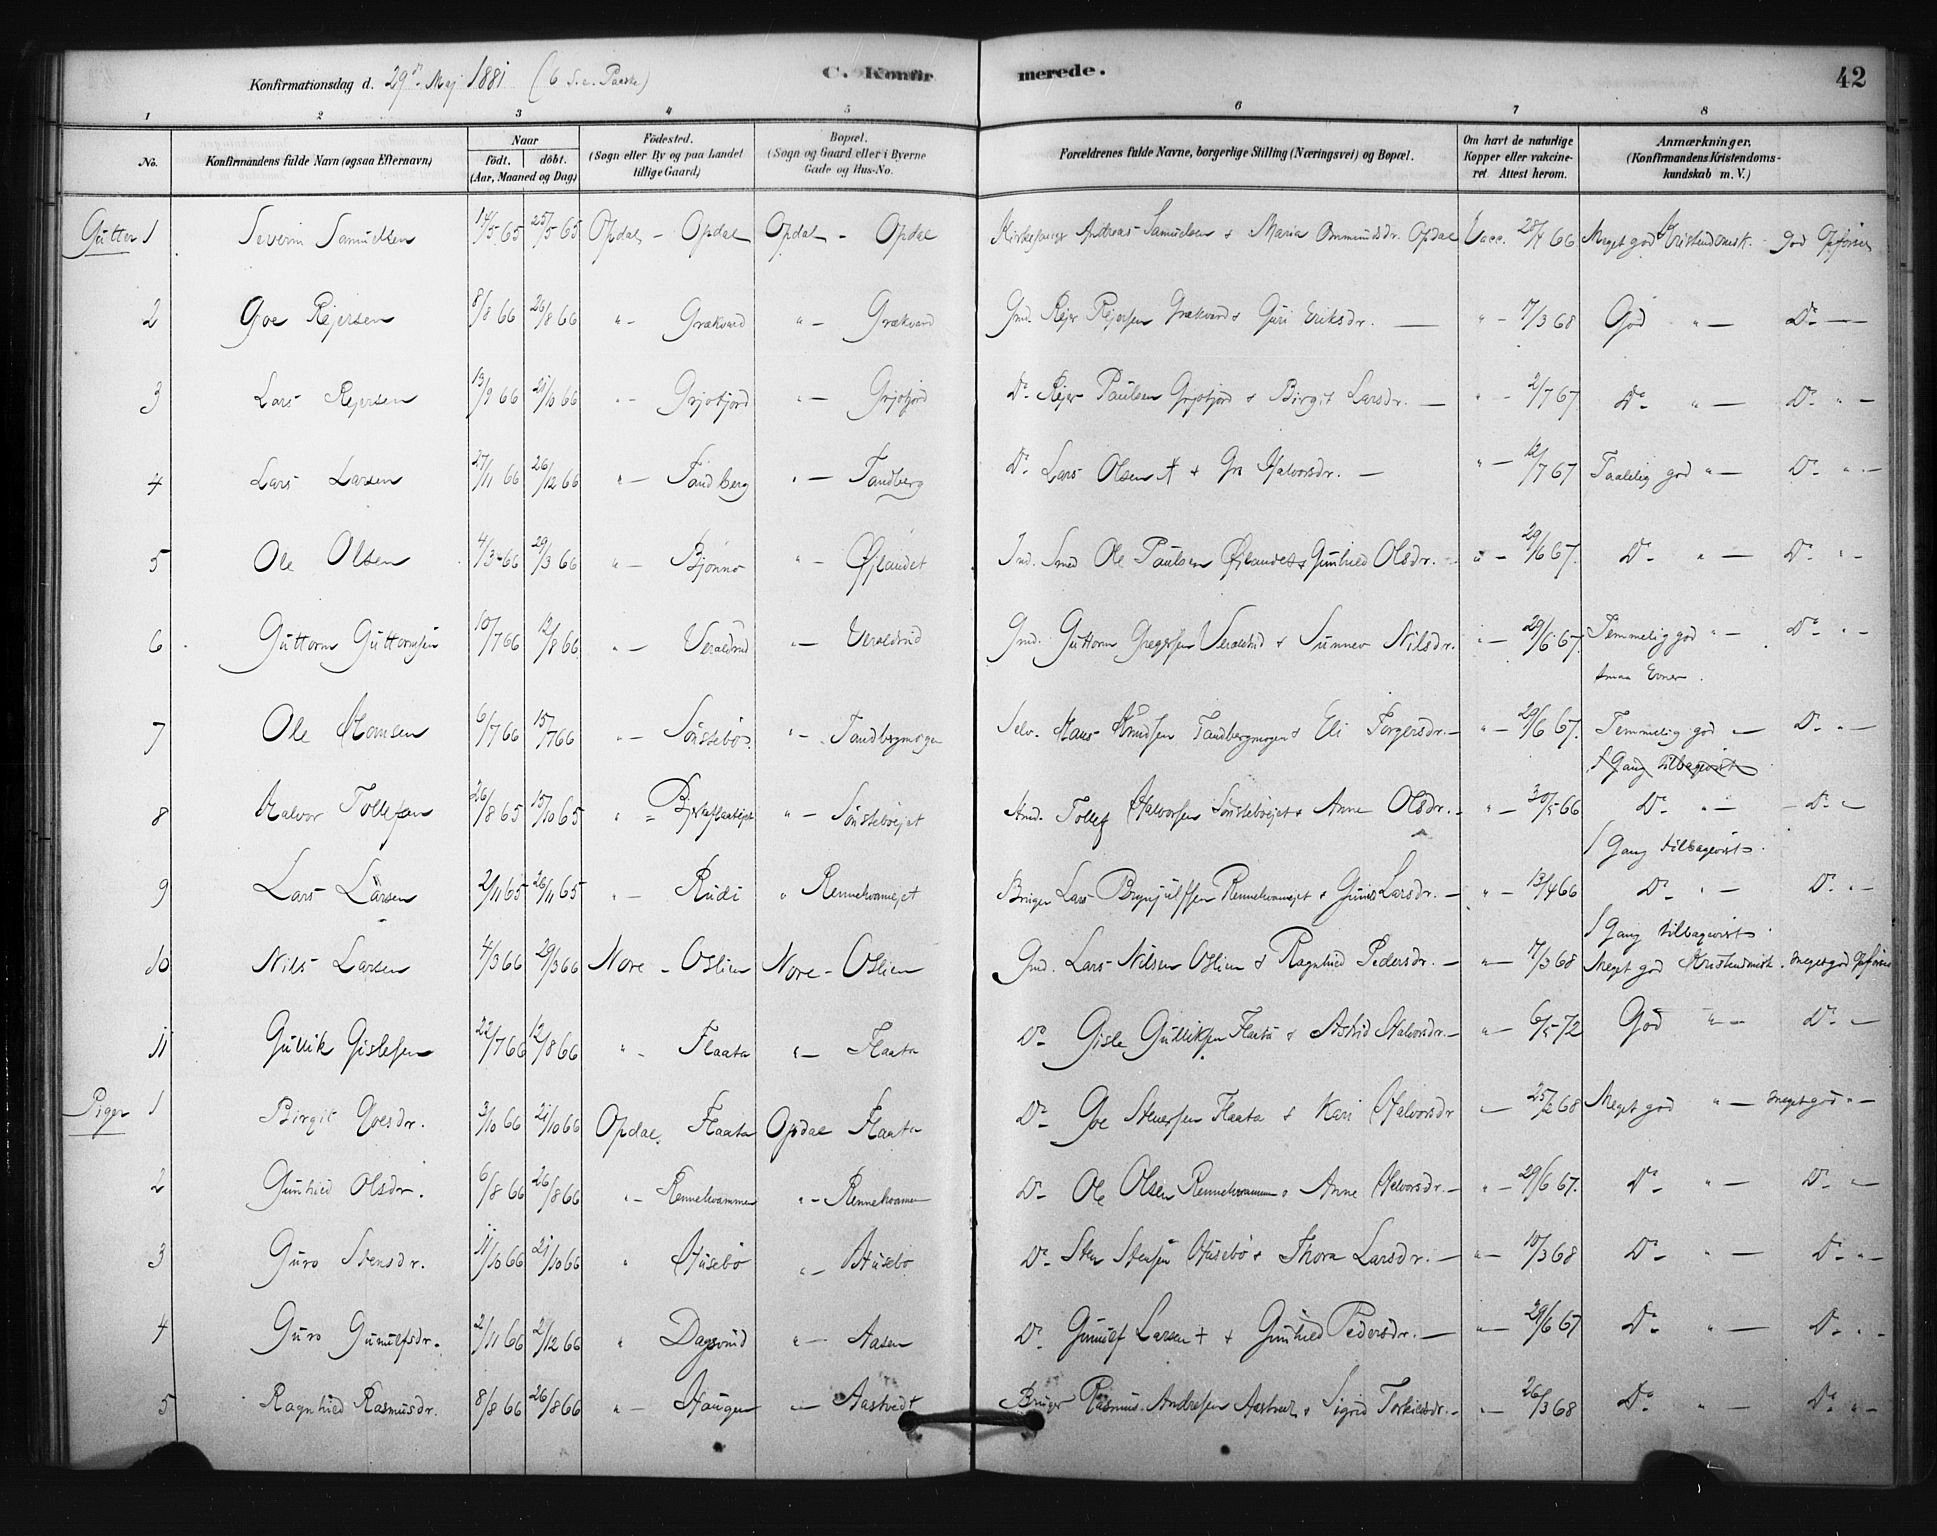 Konfirmationsdag d. 29de Maj 1881 (6 S. e. Paaske) C. Konfirmerede. 42
1 2 3 4 5 6 7 8
No. Konfirmandens fulde Navn (ogsaa Efternavn) Naar født. døbt. (Aar, Maaned og Dag) Fødested. (Sogn eller By og paa Landet tillige Gaard) Bopæl. (Sogn og Gaard eller i Byerne Gade og Hus-No. Forældrenes fulde Navne, borgerlige Stilling (Næringsvei) og Bopæl. Om havt de naturlige Kopper eller vakcineret. Attest herom. Anmærkninger. (Konfirmandens Kristendomskundskab m. V.)
Gutter 1 Severin Samuelsen 14/5 65 25/5 65 Opdal - Opdal Opdal - Opdal Andreas Samuelsen + Maria Opdal Vacc. 28/4 66 Meget god Kristendomsk. god Opførsel
2 Goe Rejersen 8/8 66 26/8 66 " - Grækvard " - Grækvard Gmd. Rejer Rejersen Grækvard + Guri Eriksdr. — " - 7/3 68 God " — Do —
3 Lars Rejersen 13/9 66 21/10 66 " - Grjotjord " — Grjotjord Do Rejer Paulsen Grjotjord + Birgit Larsdr. — " - 2/7 67 Do " — Do " —
4 Lars Larsen 27/11 66 26/12 66 " — Tandberg " — Tandberg Do Lars Olsen † + Halvorsdr. — " — 12/7 67 Taalelig god " — Do " —
5 Ole Olsen 4/3 66 29/3 66 " — Bjønno " — Øjlandet Ind. Smed Ole Paulsen Øjlandet + Gunhild Olsdr. " — 29/6 67. Do " — Do " -
6 Guttorm Guttormsen 10/7 66 12/8 66 " — Veraldrud " — Veraldrud Gmd. Guttorm Gregersen Veraldrud + Sunnev Nilsdr. " — 29/6 67. Temmelig god " — Do " -
smaa Evner.
7 Ole Hansen 6/7 66 15/7 66 " — Sønstebø " — Tandbergmogen Selv. Hans Knudsen Tandbergmogen + Eli Torgersdr. — " — 29/6 67. Temmelig god — Do " —
1 Gang tilbagevist
8 Halvor Tollefsen 26/8 65 15/10 65 " " — Sønstebøejet Tollef Halvorsen Sønstebøejet + Anne Olsdr. — " — 30/5 66 Do " — Do —
1 Gang tilbagevist.
9 Lars Larsen 2/11 65 26/11 65 " — Rudi " Rennekvamejet Bruger Lars Brynjulfsen Rennekvamejet + Larsdr. — " — 13/4 66 Do " — Do " —
1 Gang tilbagevist.
10 Nils Larsen 4/3 66 29/3 66 Nore - Oslien Nore - Oslien Gmd. Lars Nilsen Oslien + Ragnhild Pedersdr. — " — 7/3 68 Meget god Kristendomsk. meget god Opførsel
11 Gullik Gislesen 22/7 66 12/8 66 " - Flaata " — Flaata Do Gisle Gulliksen Flaata + Astrid Halvorsdr. — " — 6/5 72 God " — Do —
Piger 1 Birgit Goesdr. 3/10 66 21/10 66 Opdal. Flaata Opdal Flaata Do Goe Stenersen Flaata + Kari Halvorsdr — 25/2 68 Meget god " — meget god " —
2 Gunhild Olsdr. 6/8 66 26/8 66 " - Rennekvammen " - Rennekvamen Do Ole Olsen Rennekvammen + Anne Halvorsdr. — " - 29/6 67. Do " — Do " —
3 Guro Stensdr. 11/10 66 21/10 66 " Husebø " — Husebø Do Sten Stensen Husebø + Thora Larsdr. — " — 10/3 68 Do " — Do " —
4 Guro Gunulfsdr. 2/11 66 2/12 66 " Dagsrud " — Aasen Do Gunulf Larsen † + Gunhild Pedersdr. — " — 29/6 67 Do " — Do " -
5 Ragnhild Rasmusdr. 8/8 66 26/8 66 " — Haugen " — Aastvedt Bruger Rasmus Andersen Aastvedt + Sigrid Torkildsdr. — " — 26/3 68 Do " — Do " —